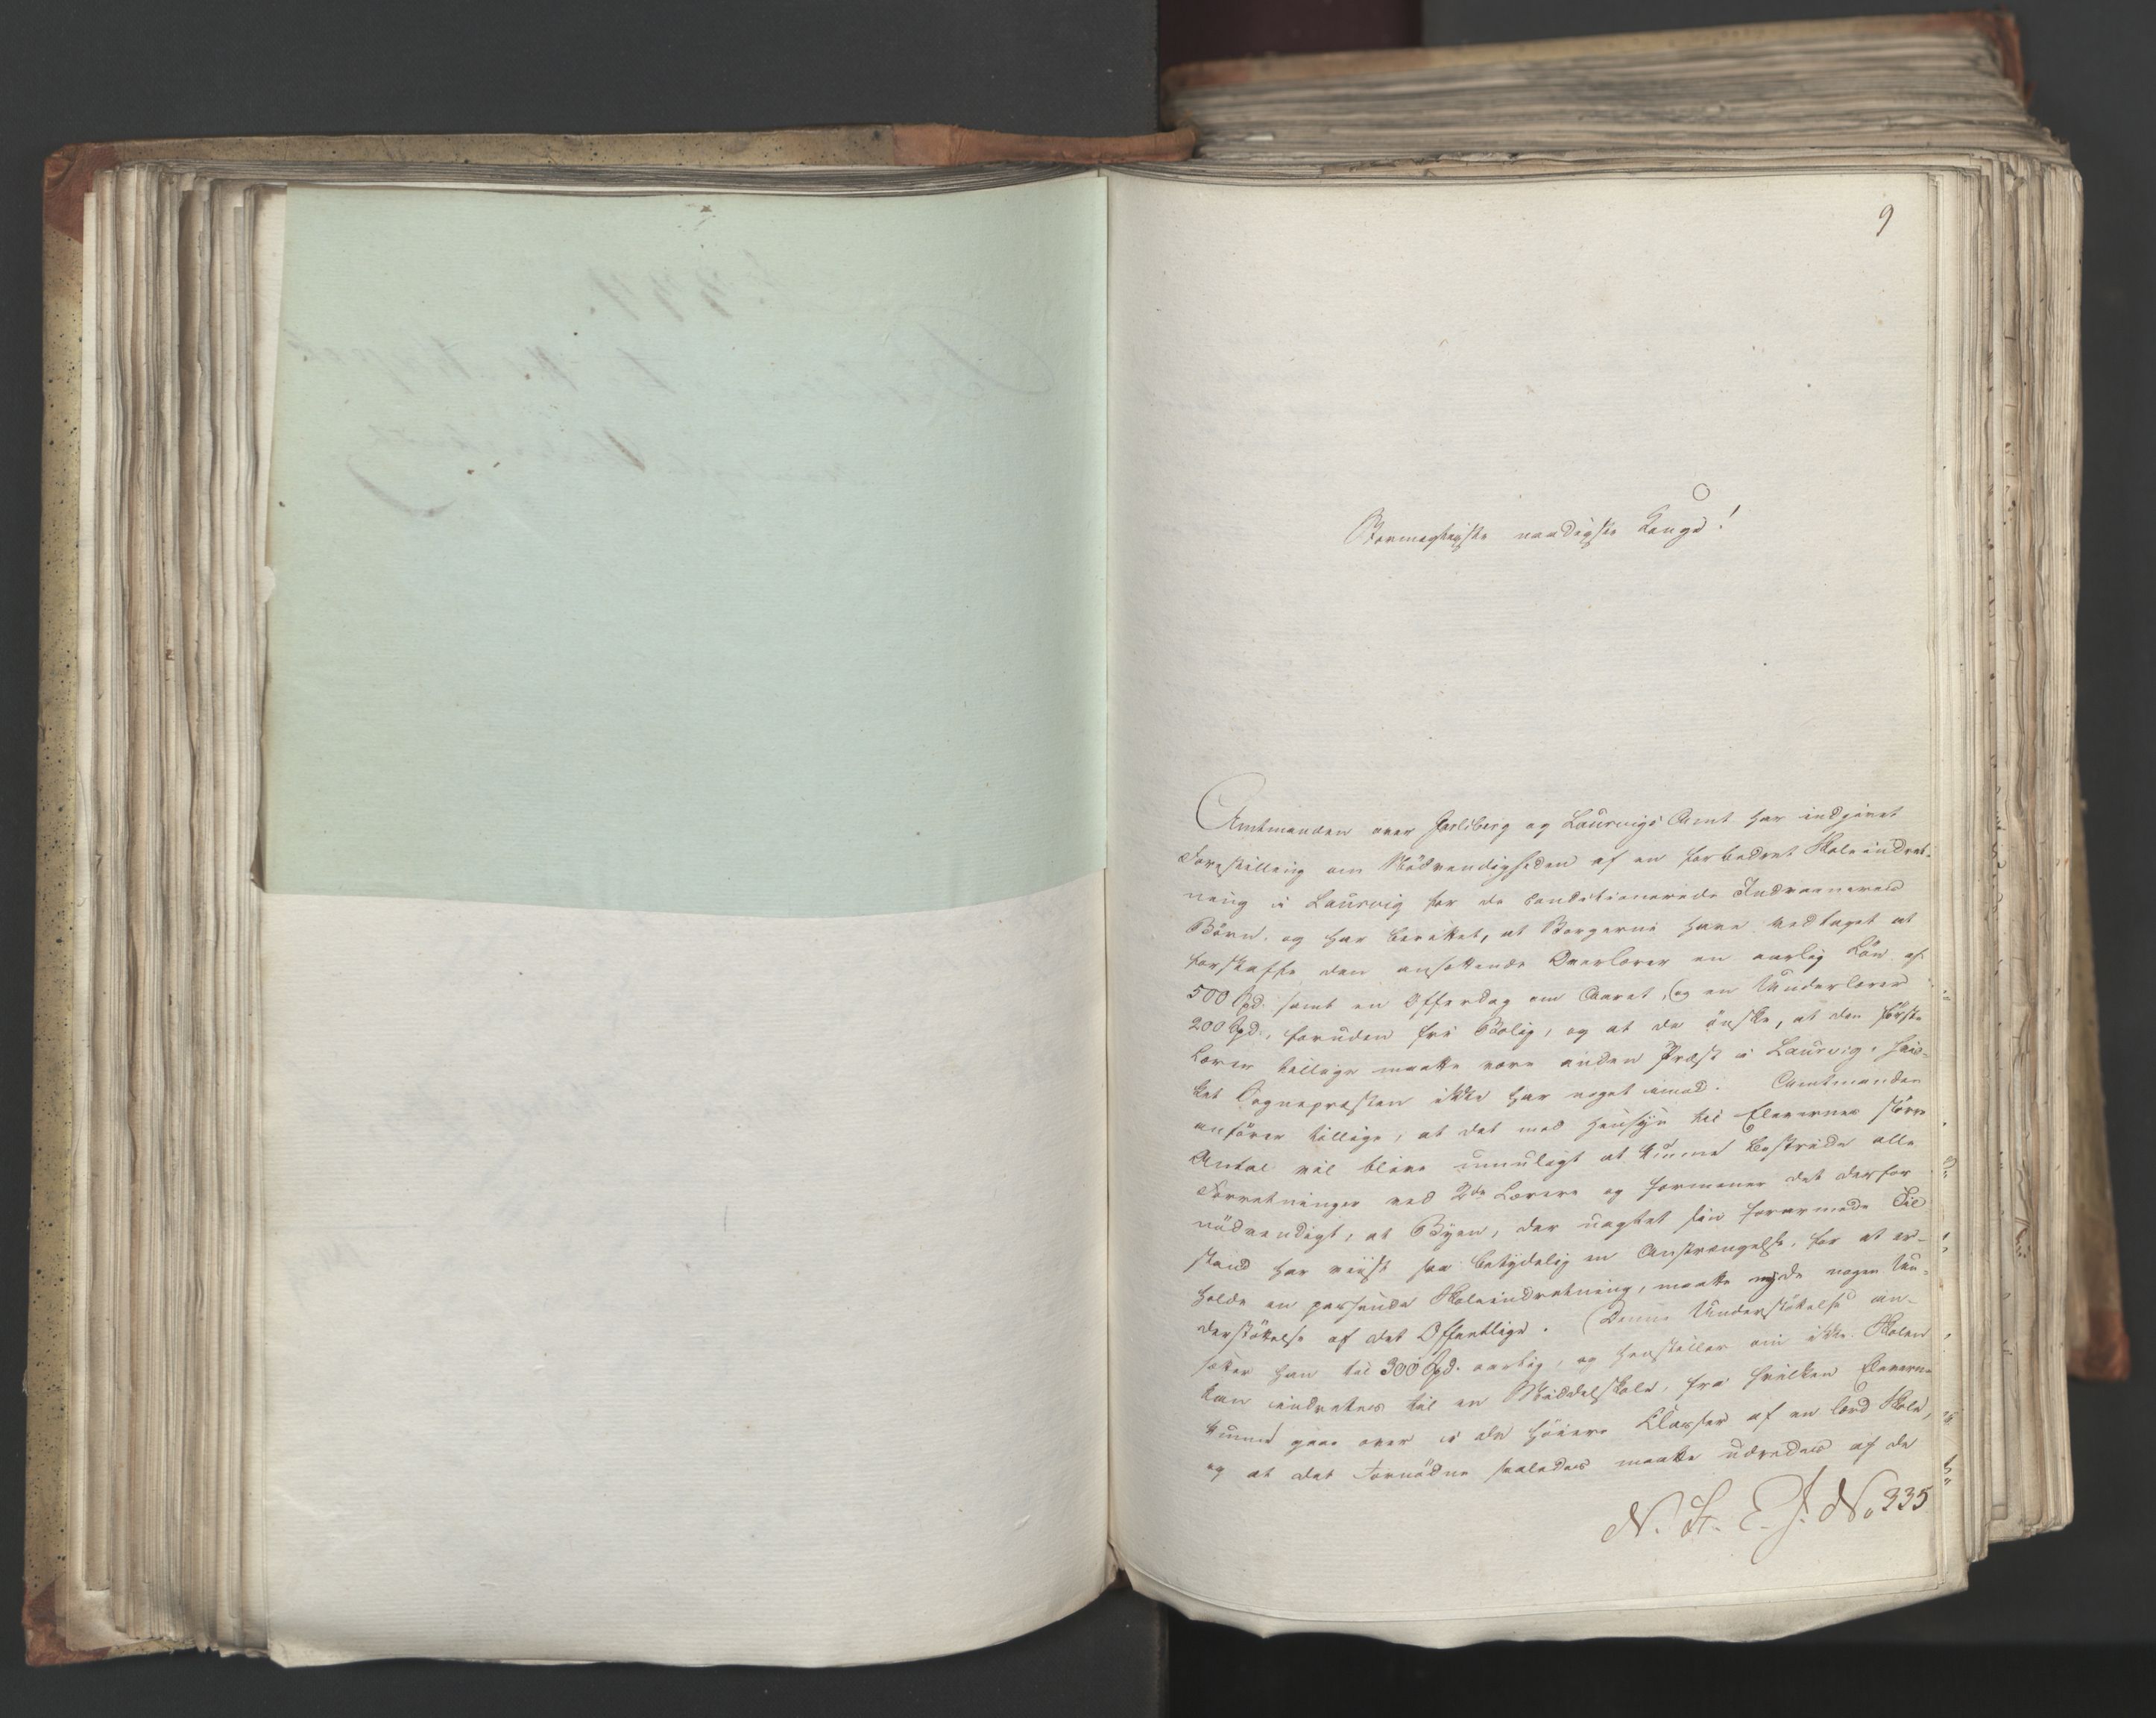 9
Stormægtigste naadigste Konge!
Amtmanden over Jarlsberg og Laurvigs Amt har indgivet
Forestilling om Nödvendigheden af en forbedret Skoleindret-
ning i Laurvig for de Conditionerede Indvaaneres
Börn, og har berettet, at Borgerne have vedtaget at
forskaffe den ansættende Overlærer en aarlig Lön af
500 Spd. samt en Offerdag om Aaret, og en Underlærer
200 Spd., foruden frie Bolig, og at de önske, at den förste
Lærer tillige maatte være anden Præst i Laurvig, hvil-
ket Sognepræsten ikke har noget imod. Amtmanden
anförer tillige, at det med Hensyn til Elevernes större
Antal vil blive umuligt at kunne bestride alle
Forretninger ved 2de Lærere og formener det derfor
nödvendigt, at Byen, der uagtet sin forarmede Til
stand har viist saa betydelig en Anstrængelse, for at er-
holde en passende Skoleindretning, maatte nyde nogen Un-
derstöttelse af det Offentlige. Denne Understöttelse an-
sætter han til 300 Spd. aarlig, og henstiller om ikke Skolen
kan indrettes til en Middelskole, fra hvilken Eleverne
kunne gaae over i de höiere Classer af en lærd Skole,
og at det Fornödne saaledes maatte udredes af de
N. St. E. J. No 335